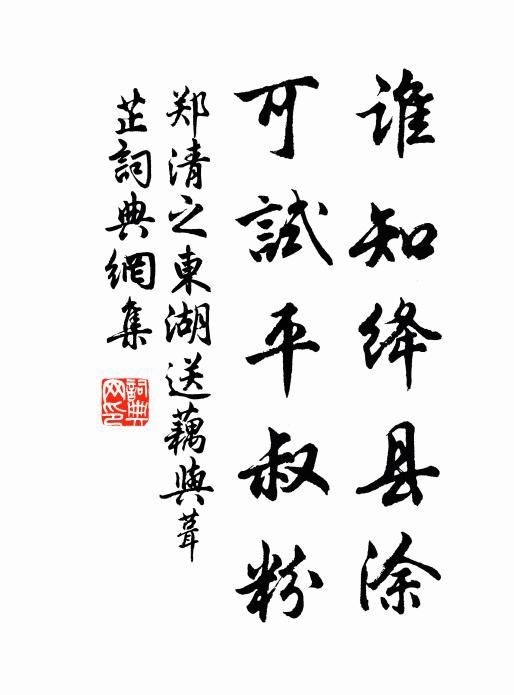 谁知绛县涂
可試平叔粉
郑清之東湖送藕與葺
芷詞典網集
詞典网印